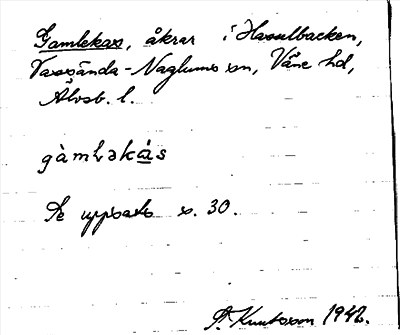 Gamlekas, åkrar i Hasselbacken,
Vassända-Naglums sn, Väne hd,
Älvsb. l.
gàmləkás
Se uppsats s. 30.
P. Knutsson 1942.